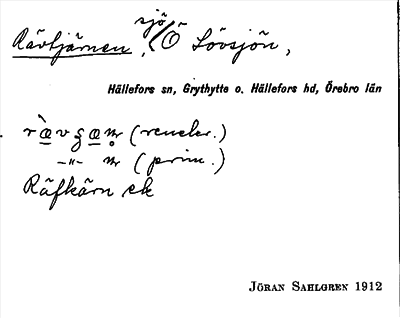 Rävtjärnen, sjö/Ö Lövsjön,
Hällefors sn, Grythytte o. Hällefors hd, Örebro län
rævʒæn̥r (reucker.)
–"– n̥r (prim.)
Räfkärn ek
JÖRAN SAHLGREN 1912